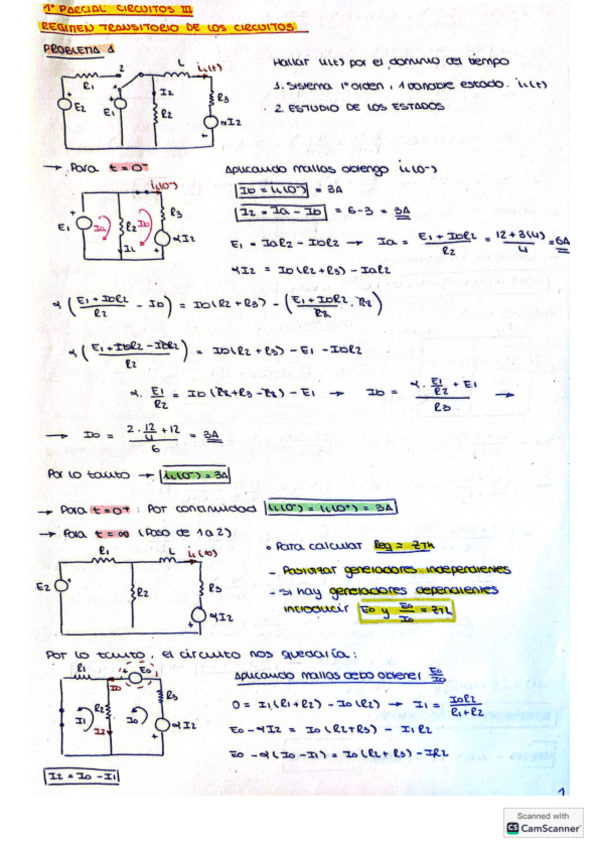 1º PARCIAL CIRCUITOS III
REGIMEN TRANSITORIO DE LOS CIRCUITOS
PROBLEMA 1
Hallar iL(t) por el dominio del tiempo
1. Sistema 1º orden, 1 variable estado. iL(t)
2. ESTUDIO DE LOS ESTADOS
R1 2 L iL(t)
1 I2 R3
E2 E1 R2 αI2
→ Para t = 0⁻
Aplicando mallas obtengo iL(0⁻)
iL(0⁻)
E1 Ia R2 Ib R3
I2 αI2
Ib = iL(0⁻) = 3A
I2 = Ia - Ib = 6-3 = 3A
E1 = IaR2 - IbR2 → Ia = (E1 + IbR2)/R2 = (12+3(4))/4 = 6A
αI2 = Ib(R2+R3) - IaR2
α((E1+IbR2)/R2 - Ib) = Ib(R2+R3) - ((E1+IbR2)/R2 · R2)
α((E1+IbR2-IbR2)/R2) = Ib(R2+R3) - E1 - IbR2
α · E1/R2 = Ib(R2+R3-R2) - E1 → Ib = (α · E1/R2 + E1)/R3 →
→ Ib = (2 · 12/4 + 12)/6 = 3A
Por lo tanto → iL(0⁻) = 3A
→ Para t = 0⁺ : Por continuidad iL(0⁻) = iL(0⁺) = 3A
→ Para t = ∞ (Paso de 1 a 2)
R1 L iL(∞)
E2 R2 R3
αI2
• Para calcular Req = ZTh
- Pasivizar generadores independientes
- Si hay generadores dependientes
introducir E0 y E0/I0 = ZTh
Por lo tanto, el circuito nos quedaría:
R1 E0
I0 R3
I1 R2 I0 αI2
I2
Aplicando mallas debo obtener E0/I0
0 = I1(R1+R2) - I0(R2) → I1 = I0R2/(R1+R2)
E0 - αI2 = I0(R2+R3) - I1R2
E0 - α(I0-I1) = I0(R2+R3) - IR2
I2 = I0 - I1
1
Scanned with
CS CamScanner